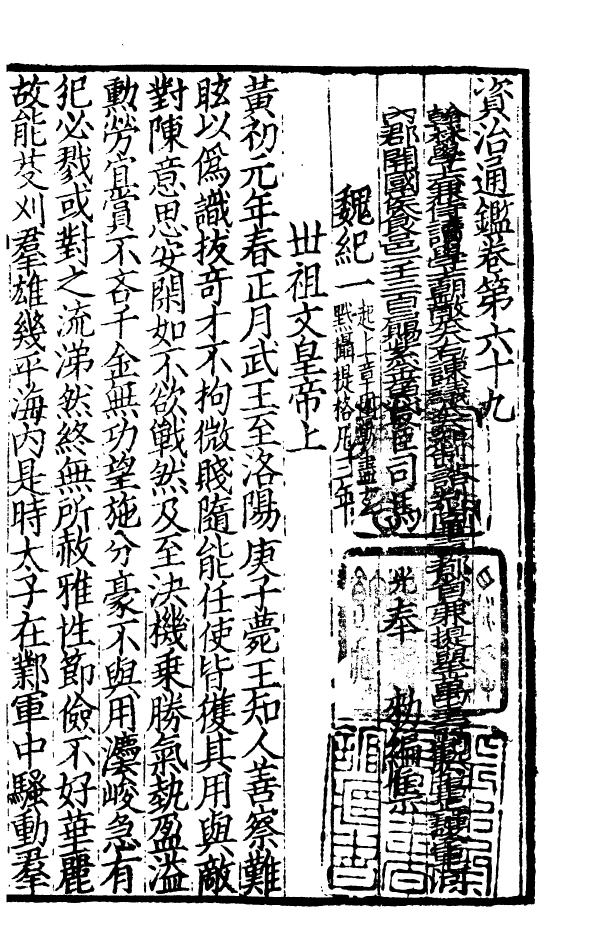 資治通鑑卷第六十九
翰林學士兼侍讀學士朝散大夫右諫議大夫知制誥判尚書都省兼提舉萬壽觀公事上護軍河
內郡開國侯食邑一千三百戶賜紫金魚袋臣司馬光奉 勑編集
魏紀一起上章困敦盡玄黓攝提格凡三年
世祖文皇帝上
黃初元年春正月武王至洛陽庚子薨王知人善察難
眩以僞識拔奇才不拘微賤隨能任使皆獲其用與敵
對陳意思安閑如不欲戰然及至決機乗勝氣埶盈溢
勳勞宜賞不吝千金無功望施分豪不與用灋峻急有
犯必戮或對之流涕然終無所赦雅性節儉不好華麗
故能芟刈羣雄幾平海內是時太子在鄴軍中騷動羣